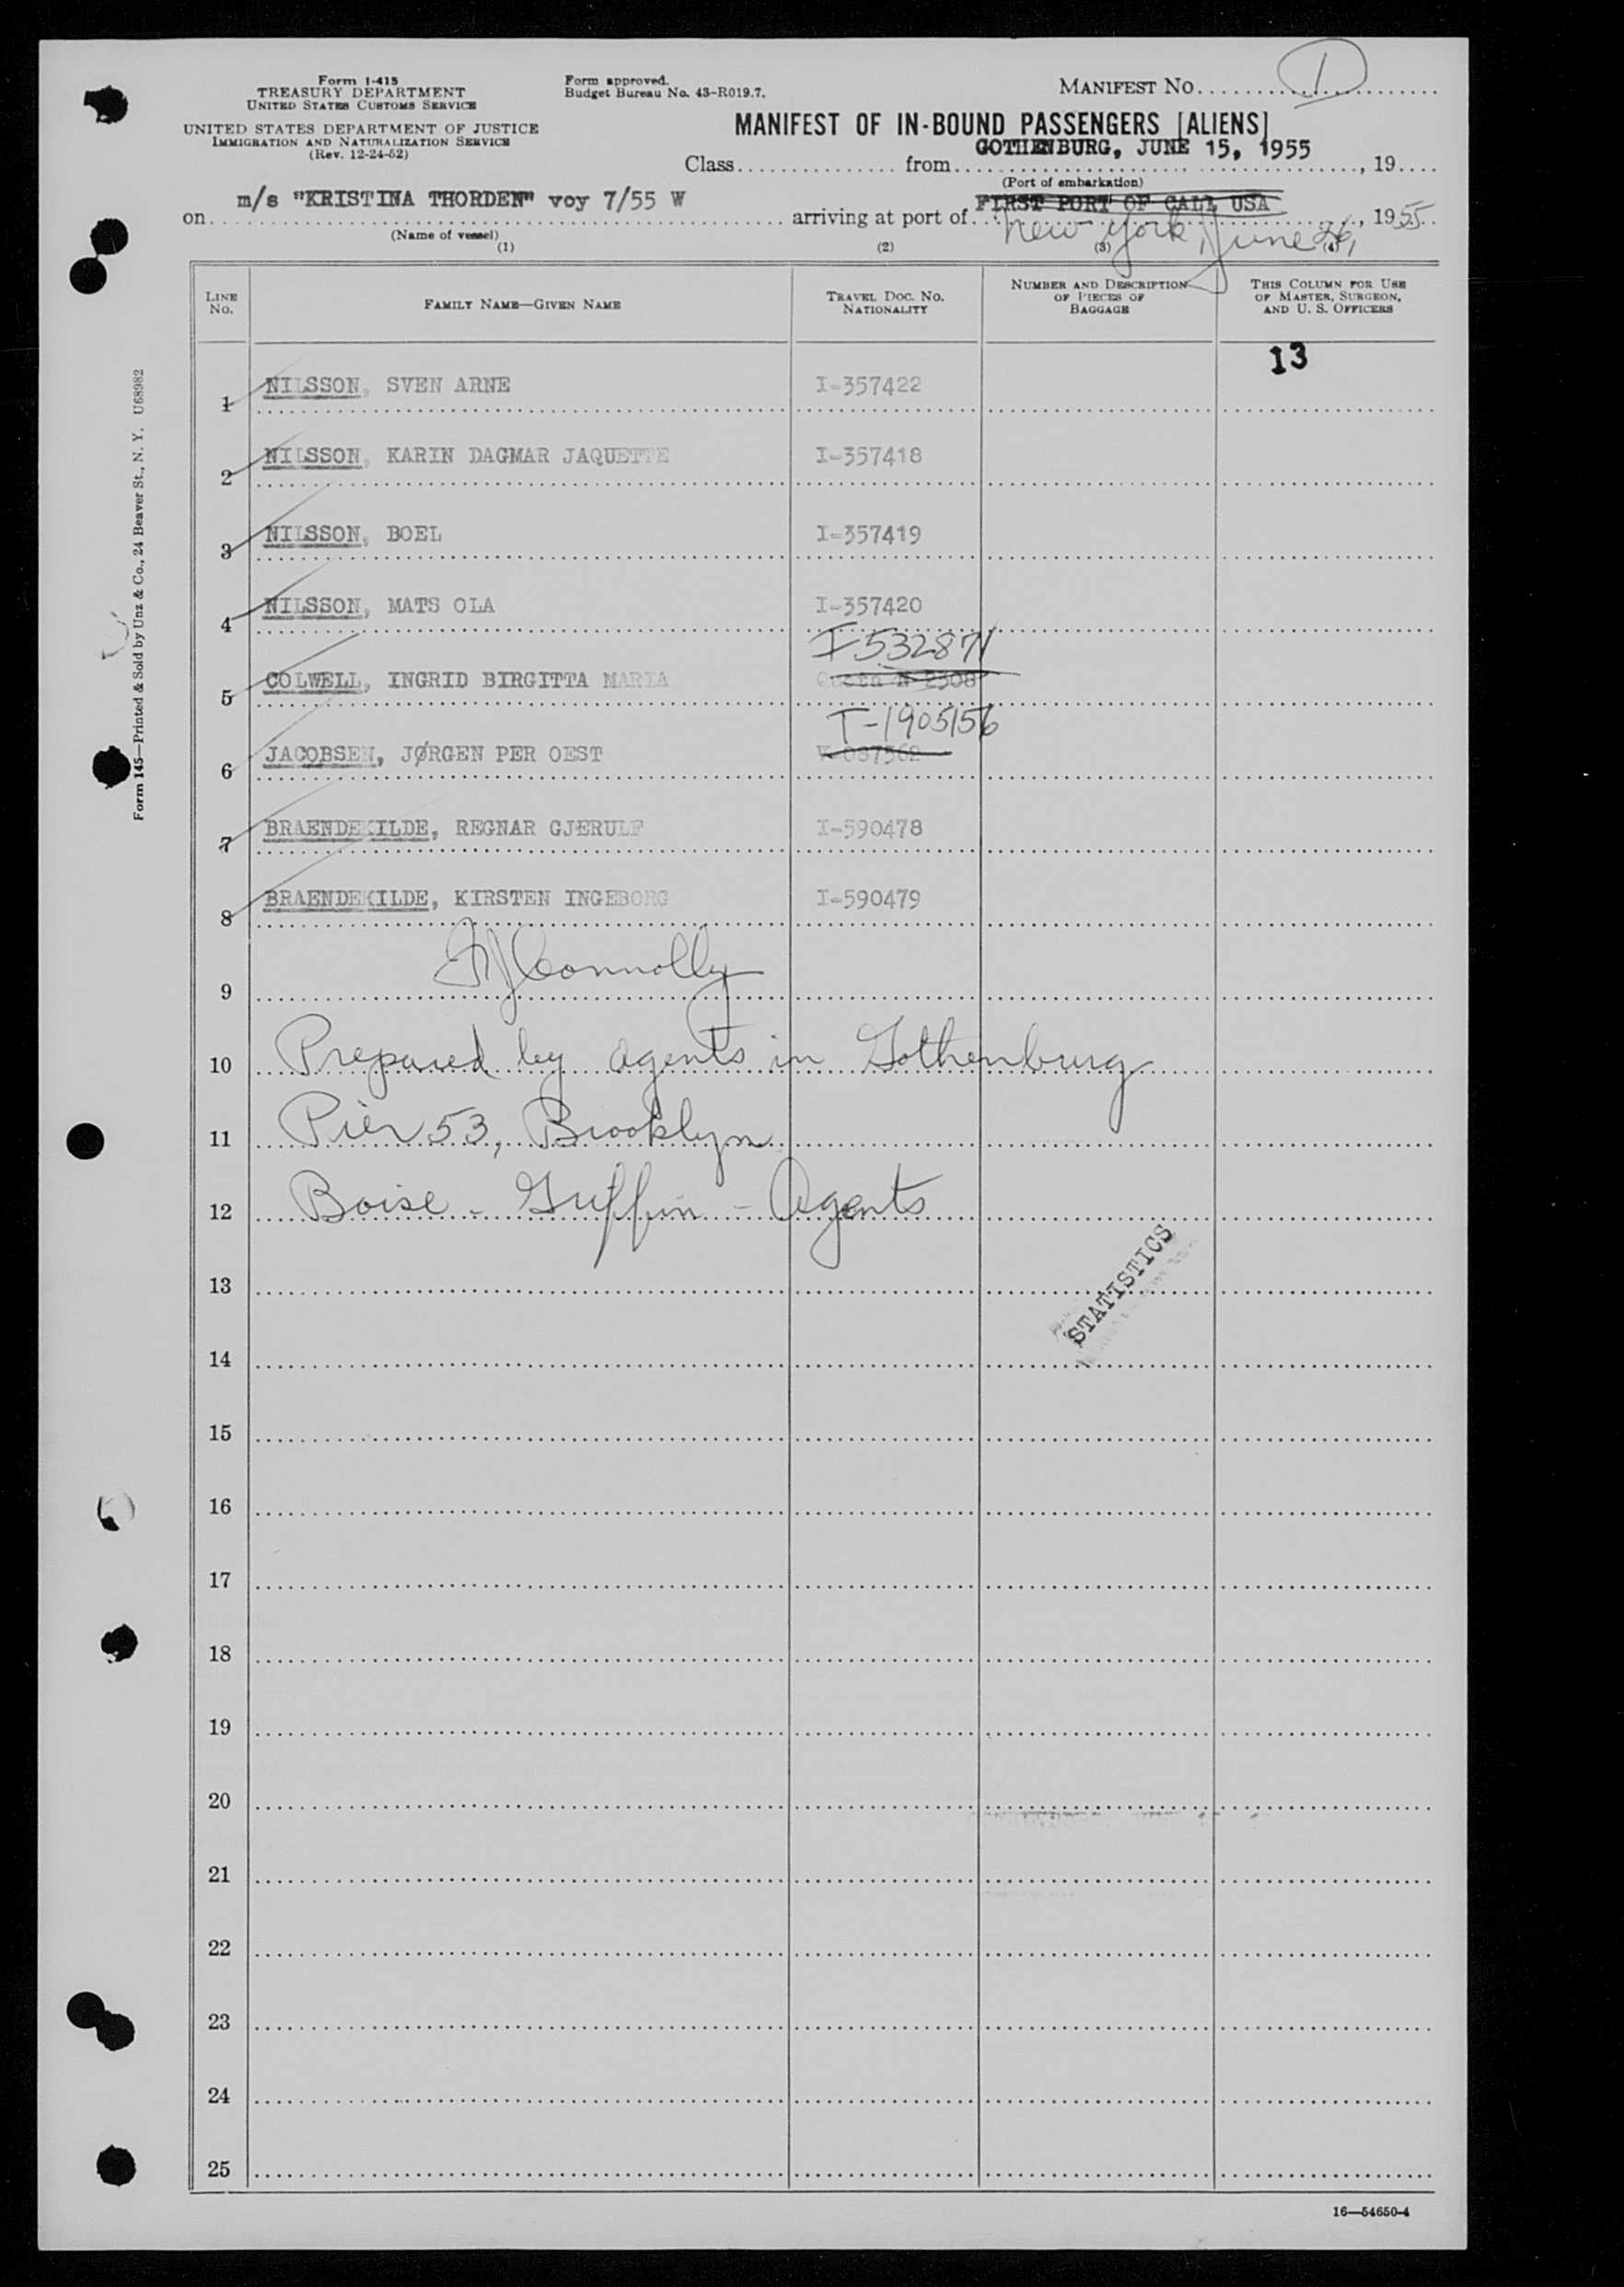 Form I-415
TREASURY DEPARTMENT
UNITED STATES CUSTOMS SERVICE
UNITED STATES DEPARTMENT OF JUSTICE
IMMIGRATION AND NATURALIZATION SERVICE
(Rev. 12-24-52)
Form approved.
Budget Bureau No. 43-R019.7.
MANIFEST NO. 1
MANIFEST OF IN-BOUND PASSENGERS [ALIENS]
Class from GOTHENBURG, JUNE 15, 1955, 19
(Port of embarkation)
on m/s "KRISTINA THORDEN" voy 7/55 W arriving at port of FIRST PORT OF CALL USA
New York, June 26, 1955
(Name of vessel)
(1) (2) (3) (4)
LINE NO. FAMILY NAME—GIVEN NAME TRAVEL DOC. NO. NATIONALITY NUMBER AND DESCRIPTION OF PIECES OF BAGGAGE THIS COLUMN FOR USE OF MASTER, SURGEON, AND U. S. OFFICERS
13
1 NILSSON, SVEN ARNE I-357422
2 NILSSON, KARIN DAGMAR JAQUETTE I-357418
3 NILSSON, BOEL I-357419
4 NILSSON, MATS OLA I-357420
I-532871
5 COLWELL, INGRID BIRGITTA MARIA
T-1905156
6 JACOBSEN, JØRGEN PER OEST
7 BRAENDEKILDE, REGNAR GJERULF I-590478
8 BRAENDEKILDE, KIRSTEN INGEBORG I-590479
9 Connolly
10 Prepared by agents in Gothenburg
11 Pier 53, Brooklyn
12 Boise - Griffin - Agents
13
STATISTICS
14
15
16
17
18
19
20
21
22
23
24
25
16—54650-4
Form 145—Printed & Sold by Unz & Co., 24 Beaver St., N. Y. U68982